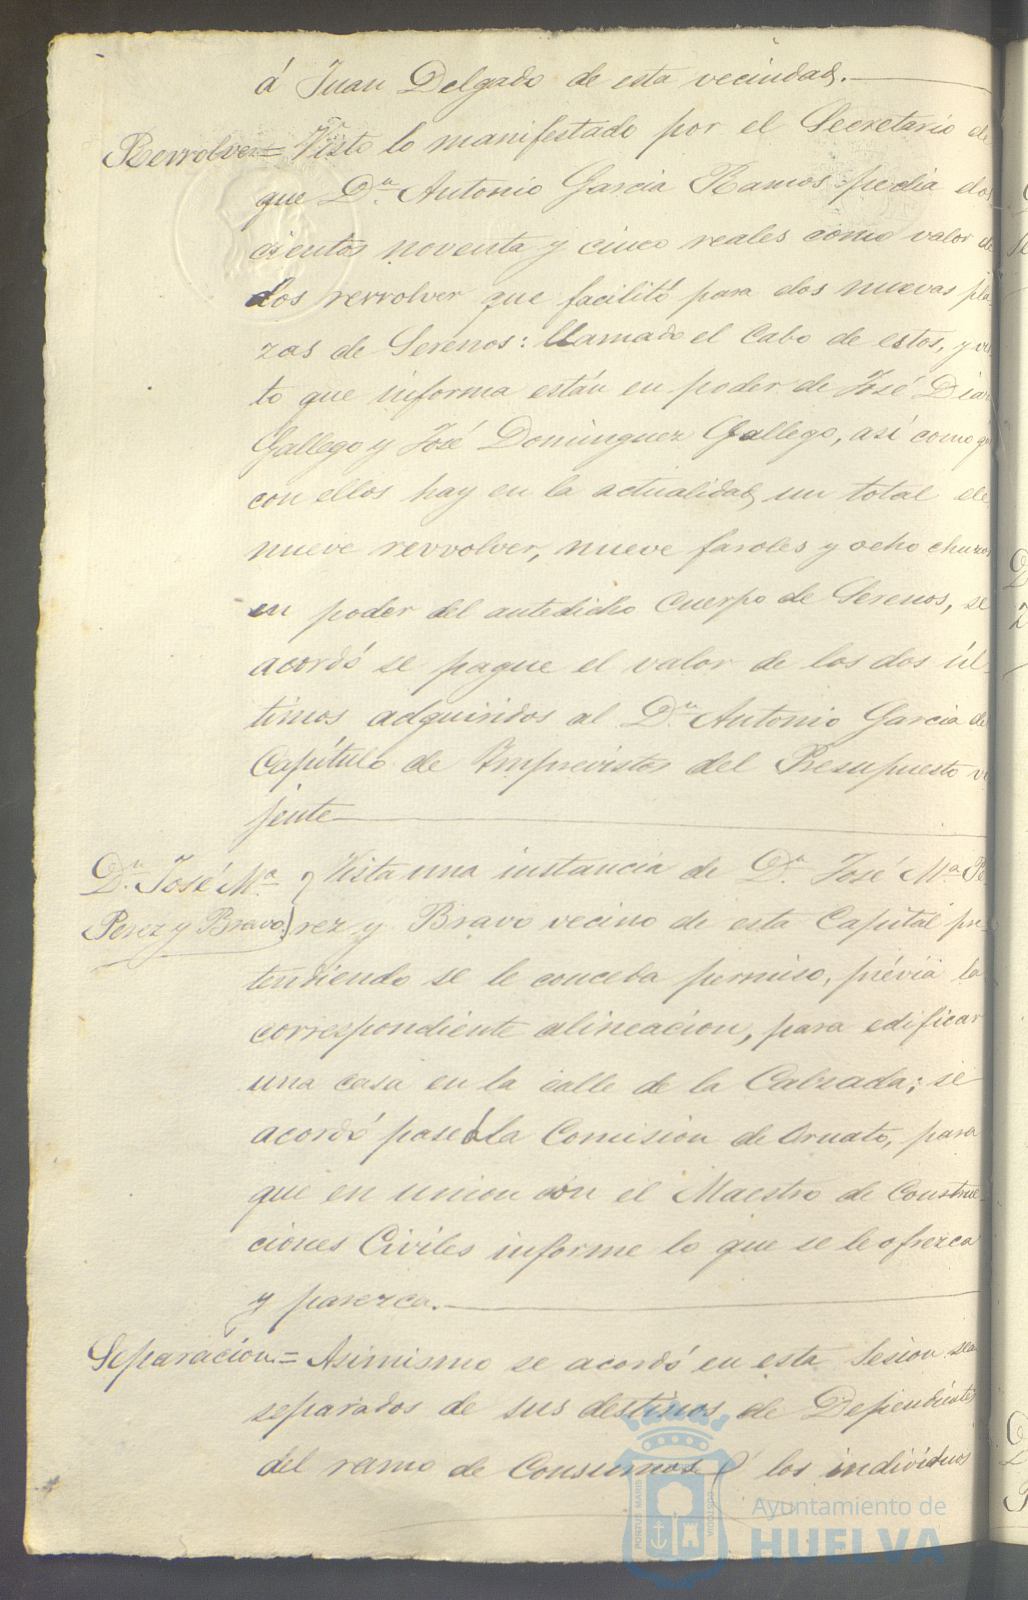 á Juan Delgado de esta vecindad.
Revolver= Visto lo manifestado por el Secretario de
que Dn. Antonio Garcia Ramos pedia dos
cientos noventa y cinco reales como valor de
dos revolver que facilitó para dos nuevas pla
zas de Serenos: llamado el Cabo de estos, y vis
to que informa están en poder de José Diaz
Gallego y José Dominguez Gallego, así como q
con ellos hay en la actualidad, un total de
nueve revolver, nueve faroles y ocho chuzos
en poder del antedicho Cuerpo de Serenos, se
acordó se pague el valor de los dos úl-
timos adquiridos al Dn. Antonio Garcia del
Capítulo de Imprevistos del Presupuesto vi
jente
Dn. José Ma. Perez y Bravo.
Vista una instancia de Dn. José Ma. Pe
rez y Bravo vecino de esta Capital pre
tendiendo se le conceda permiso, prévia la
correspondiente alineacion, para edificar
una casa en la calle de la Calzada; se
acordó pase á la Comision de Ornato, para
que en union con el Maestro de Construc-
ciones Civiles informe lo que se le ofrezca
y parezca.
Separacion.= Asimismo se acordó en esta Sesion sean
separados de sus destinos de Dependientes
del ramo de Consumos á los individuos
PORTUS MARIS
CUSTODIA
Ayuntamiento de
HUELVA